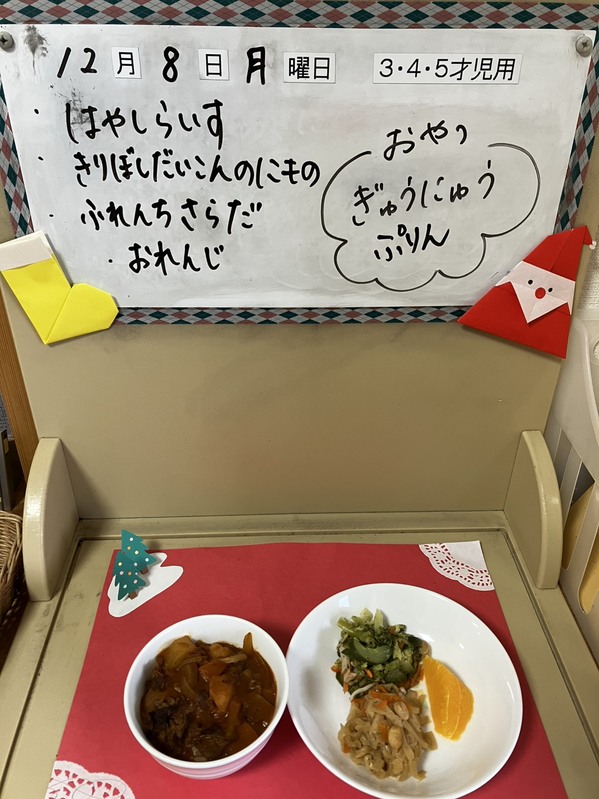 12月8日月曜日 3・4・5才児用
・はやしらいす
・きりぼしだいこんのにもの
・ふれんちさらだ
・おれんじ
おやつ
ぎゅうにゅう
ぷりん